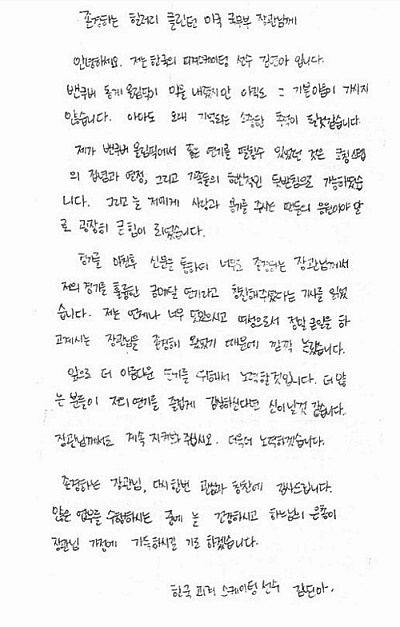 존경하는 힐러리 클린턴 미국 국무부 장관님께
안녕하세요. 저는 한국의 피겨스케이팅 선수 김연아 입니다.
밴쿠버 동계 올림픽이 막을 내렸지만 아직도 그 기쁨이 가시지
않습니다. 아마도 오래 기억되는 소중한 추억이 될것같습니다.
제가 밴쿠버 올림픽에서 좋은 연기를 펼칠수 있었던 것은 코칭스텝
의 집념과 열정, 그리고 가족들의 헌신적인 뒷받침으로 가능하였습
니다. 그리고 늘 저에게 사랑과 용기를 주시는 팬들의 응원이야 말
로 굉장히 큰 힘이 되었습니다.
경기를 마친후 신문을 통하여 너무도 존경하는 장관님께서
저의 경기를 훌륭한 금메달 연기라고 칭찬해주셨다는 기사를 읽었
습니다. 저는 언제나 너무 멋있으시고 여성으로서 정말 큰일을 하
고계시는 장관님을 존경해 왔었기 때문에 깜짝 놀랐습니다.
앞으로 더 아름다운 연기를 위해서 노력할것입니다. 더 많
은 분들이 저의 연기를 즐겁게 감상하신다면 신이날것 같습니다.
장관님께서도 계속 지켜봐 주십시오. 더욱더 노력하겠습니다.
존경하는 장관님, 다시한번 관심과 칭찬에 감사드립니다.
많은 업무를 수행하시는 중에 늘 건강하시고 하느님의 은총이
장관님 가정에 가득하시길 기도 하겠습니다.
한국 피겨 스케이팅 선수 김연아.